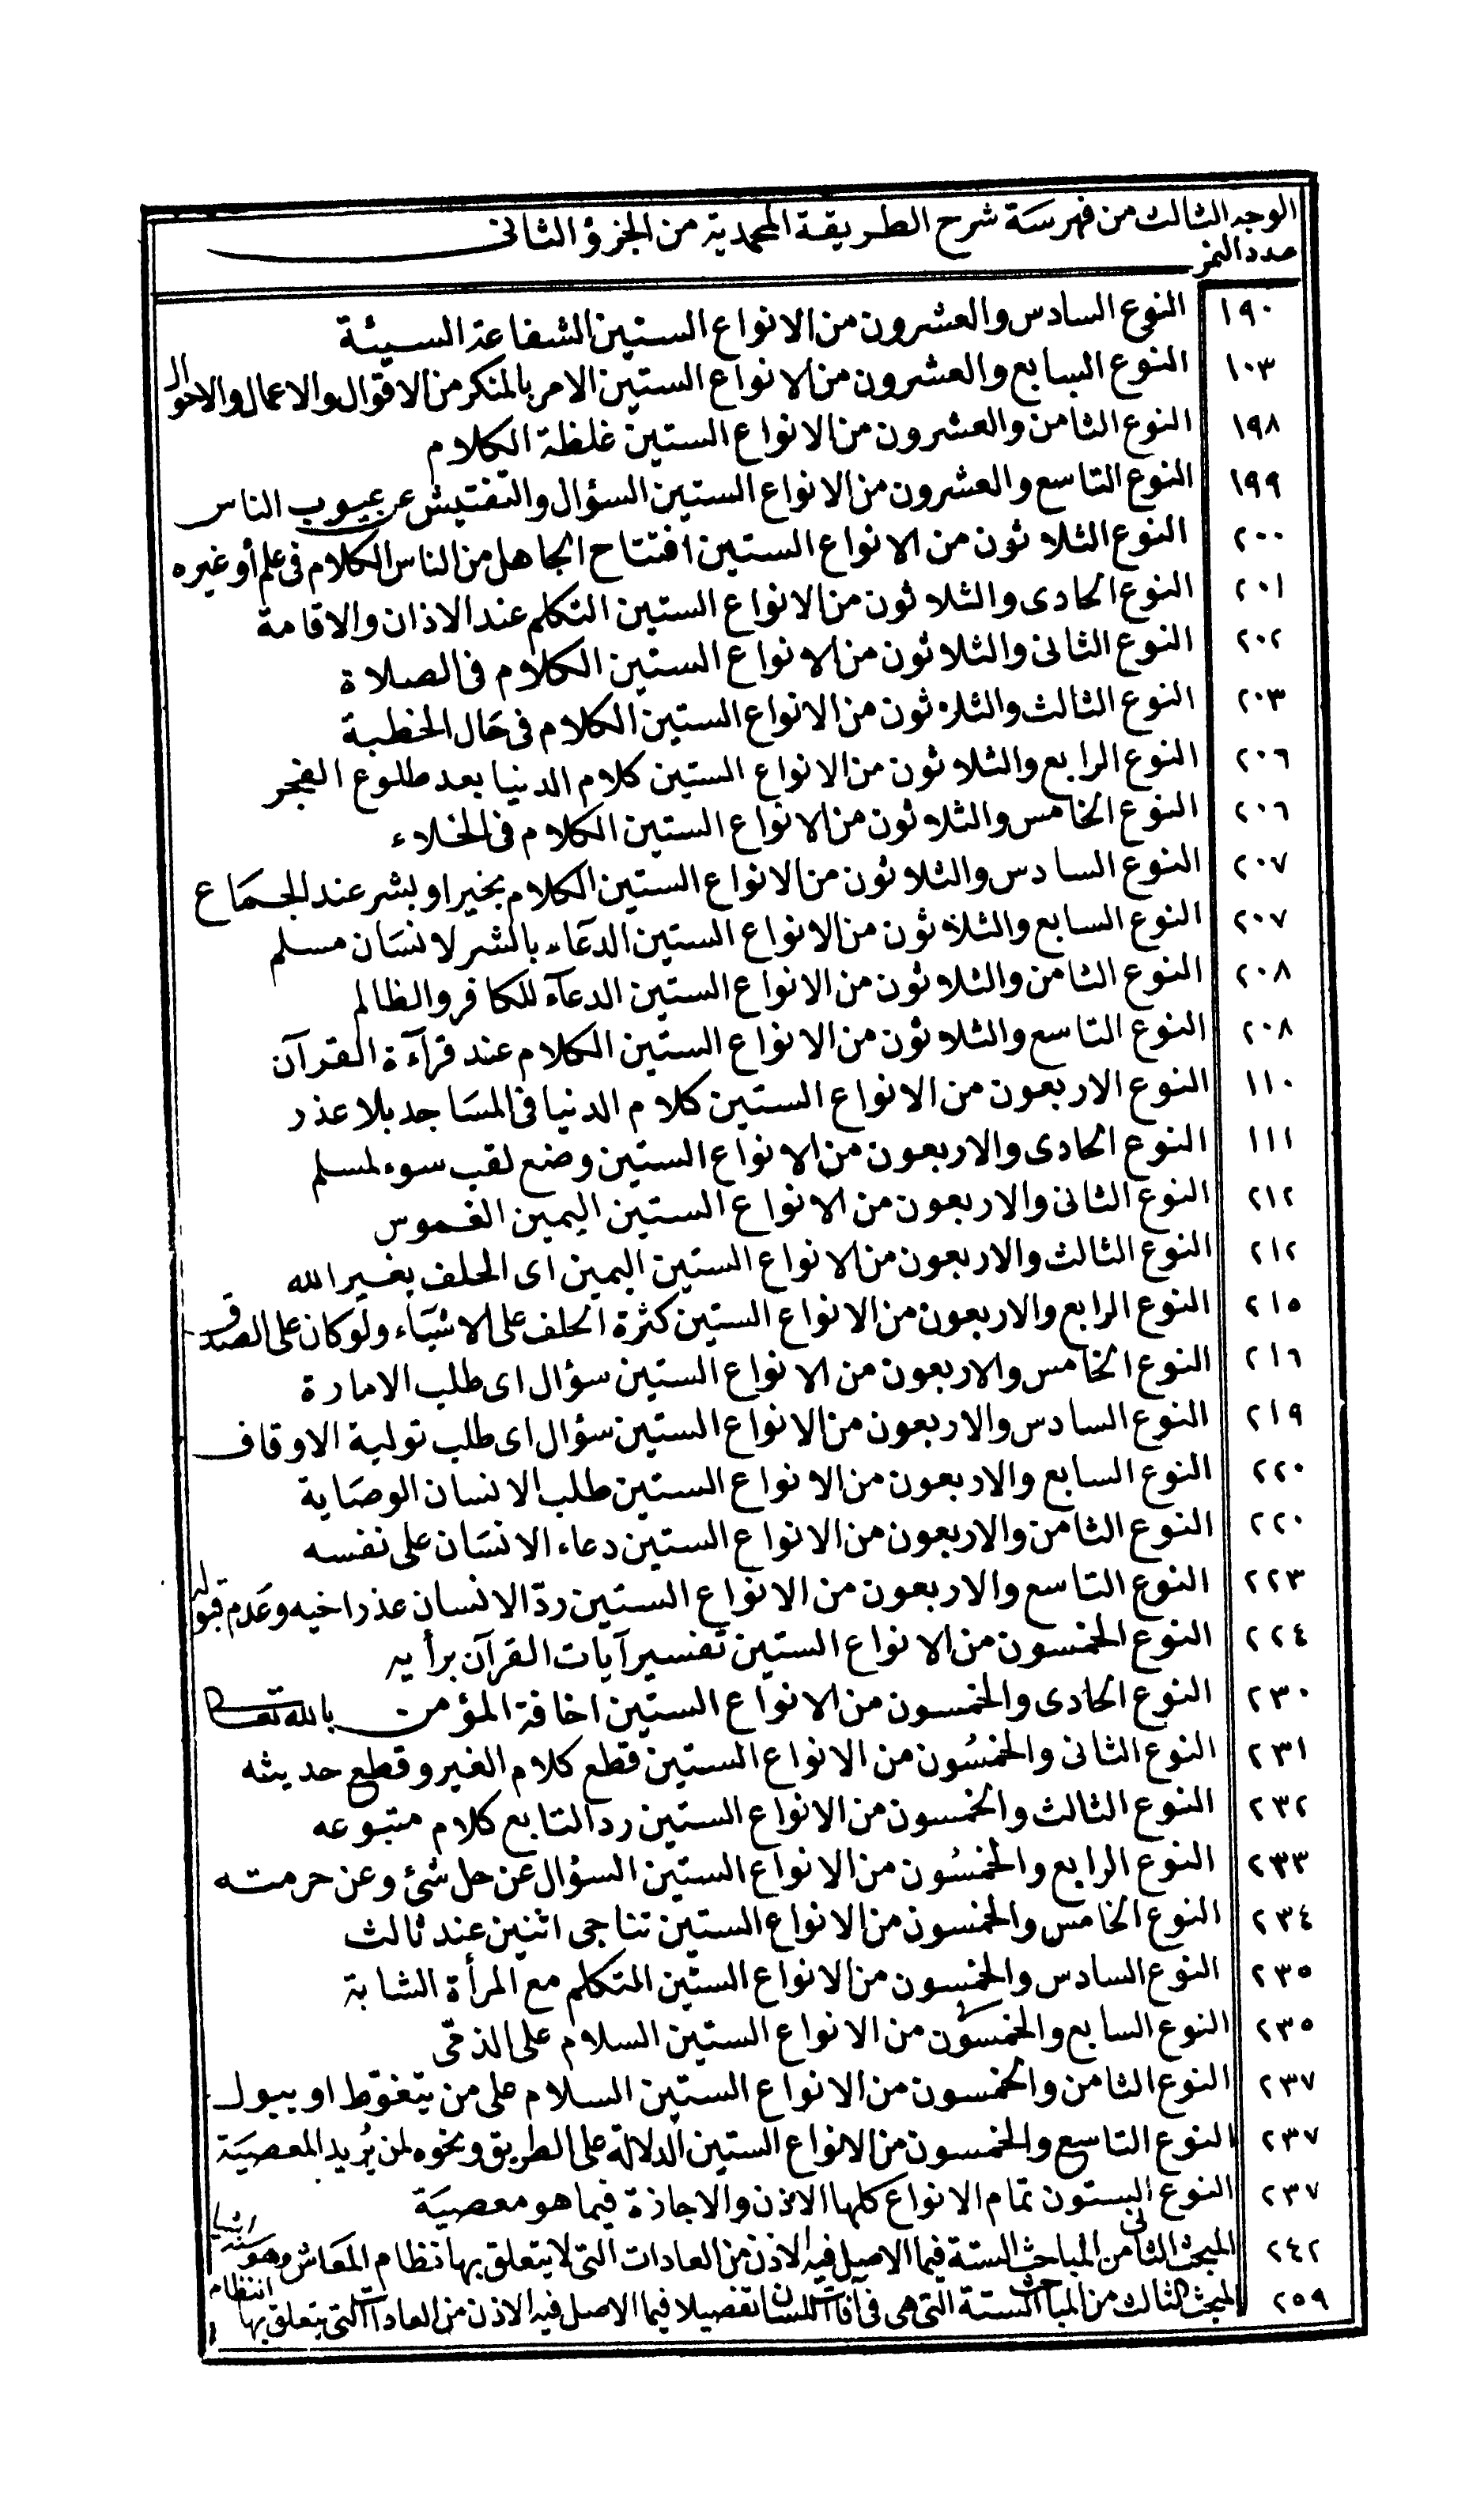 الوجه الثالث من فهرسة شرح الطريقة المحمدية من الجزؤ الثانى
عدد النمر
١٩٠ النوع السادس والعشرون من الانواع الستين الشفاعة السيئة
١٠٣ النوع السابع والعشرون من الانواع الستين الامر بالمنكر من الاقوال والاعمال والاحوال
١٩٨ النوع الثامن والعشرون من الانواع الستين غلظة الكلام
١٩٩ النوع التاسع والعشرون من الانواع الستين السؤال والتفتيش عن عيوب الناس
٢٠٠ النوع الثلاثون من الانواع الستين افتتاح الجاهل من الناس الكلام فى علم أو غيره
٢٠١ النوع الحادى والثلاثون من الانواع الستين التكلم عند الاذان والاقامة
٢٠٢ النوع الثانى والثلاثون من الانواع الستين الكلام فى الصلاة
٢٠٣ النوع الثالث والثلاثون من الانواع الستين الكلام فى حَال الخطبة
٢٠٦ النوع الرابع والثلاثون من الانواع الستين كلام الدنيا بعد طلوع الفجر
٢٠٦ النوع الخامس والثلاثون من الانواع الستين الكلام فى الخلاء
٢٠٧ النوع السادس والثلاثون من الانواع الستين الكلام بخير او بشر عند الجمَاع
٢٠٧ النوع السابع والثلاثون من الانواع الستين الدعَاء بالشر لانسَان مسلم
٢٠٨ النوع الثامن والثلاثون من الانواع الستين الدعآء للكافر والظالم
٢٠٨ النوع التاسع والثلاثون من الانواع الستين الكلام عند قرآءة القرآن
١١٠ النوع الاربعون من الانواع الستين كلام الدنيا فى المسَاجد بلا عذر
١١١ النوع الحادى والاربعون من الانواع الستين وضع لقب سوء لمسلم
٢١٢ النوع الثانى والاربعون من الانواع الستين اليمين الغموس
٢١٢ النوع الثالث والاربعون من الانواع الستين اليمين اى الحلف بغير الله
٢١٥ النوع الرابع والاربعون من الانواع الستين كثرة الحلف على الاشيَاء ولوكان على الصدق
٢١٦ النوع الخامس والاربعون من الانواع الستين سؤال اى طلب الامارة
٢١٩ النوع السادس والاربعون من الانواع الستين سؤال اى طلب تولية الاوقاف
٢٢٠ النوع السابع والاربعون من الانواع الستين طلب الانسان الوصَاية
٢٢٠ النوع الثامن والاربعون من الانواع الستين دعاء الانسَان على نفسه
٢٢٣ النوع التاسع والاربعون من الانواع الستين ردّ الانسان عذر اخيه وعَدم قبوله
٢٢٤ النوع الخمسون من الانواع الستين تفسير آيات القرآن برأيه
٢٣٠ النوع الحادى والخمسون من الانواع الستين اخافة المؤمن بالله تعالى
٢٣١ النوع الثانى والخمسُون من الانواع الستين قطع كلام الغير وقطع حديثه
٢٣٢ النوع الثالث والخمسون من الانواع الستين رد التابع كلام متبوعه
٢٣٣ النوع الرابع والخمسُون من الانواع الستين السؤال عن حل شئ وعن حرمته
٢٣٤ النوع الخامس والخمسون من الانواع الستين تناجى اثنين عند ثالث
٢٣٥ النوع السادس والخمسون من الانواع الستين المتكلم مع المرأة الشابة
٢٣٥ النوع السابع والخمسون من الانواع الستين السلام على الذمّى
٢٣٧ النوع الثامن والخمسون من الانواع الستين السلام على من يتغوّط او يبول
٢٣٧ النوع التاسع والخمسون من الانواع الستين الدلالة على الطريق ونحوه لمن يُريد المعصيَة
٢٣٧ النوع الستون تمام الانواع كلها الاذن والاجازة فيما هو معصيَة
٢٤٢ المبحث الثانى من المباحث الستة فيما الاصل فيه الاذن من العادات التى لا يتعلق بها نظام المعَاش وهو
٢٥٩ المبحث الثالث من المباحث الستة التى هى فى آفات اللسان تفصيلا فيما الاصل فيه الاذن من العادات التى يتعلق بها انتظام